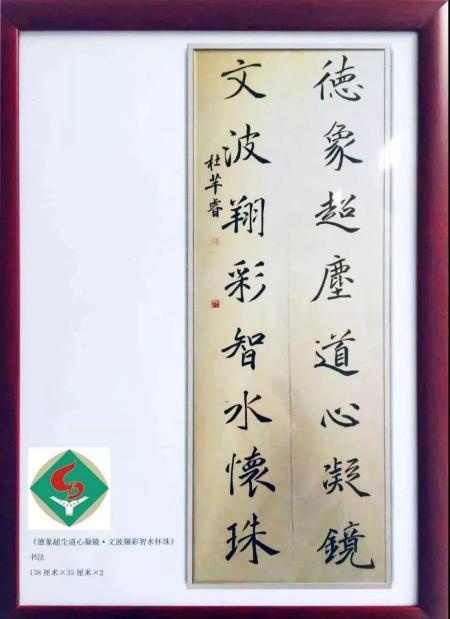 德象超塵道心凝鏡
文波翔彩智水懷珠
杜芊睿
《德象超尘道心凝镜·文波翔彩智水怀珠》
书法
138 厘米×35 厘米×2